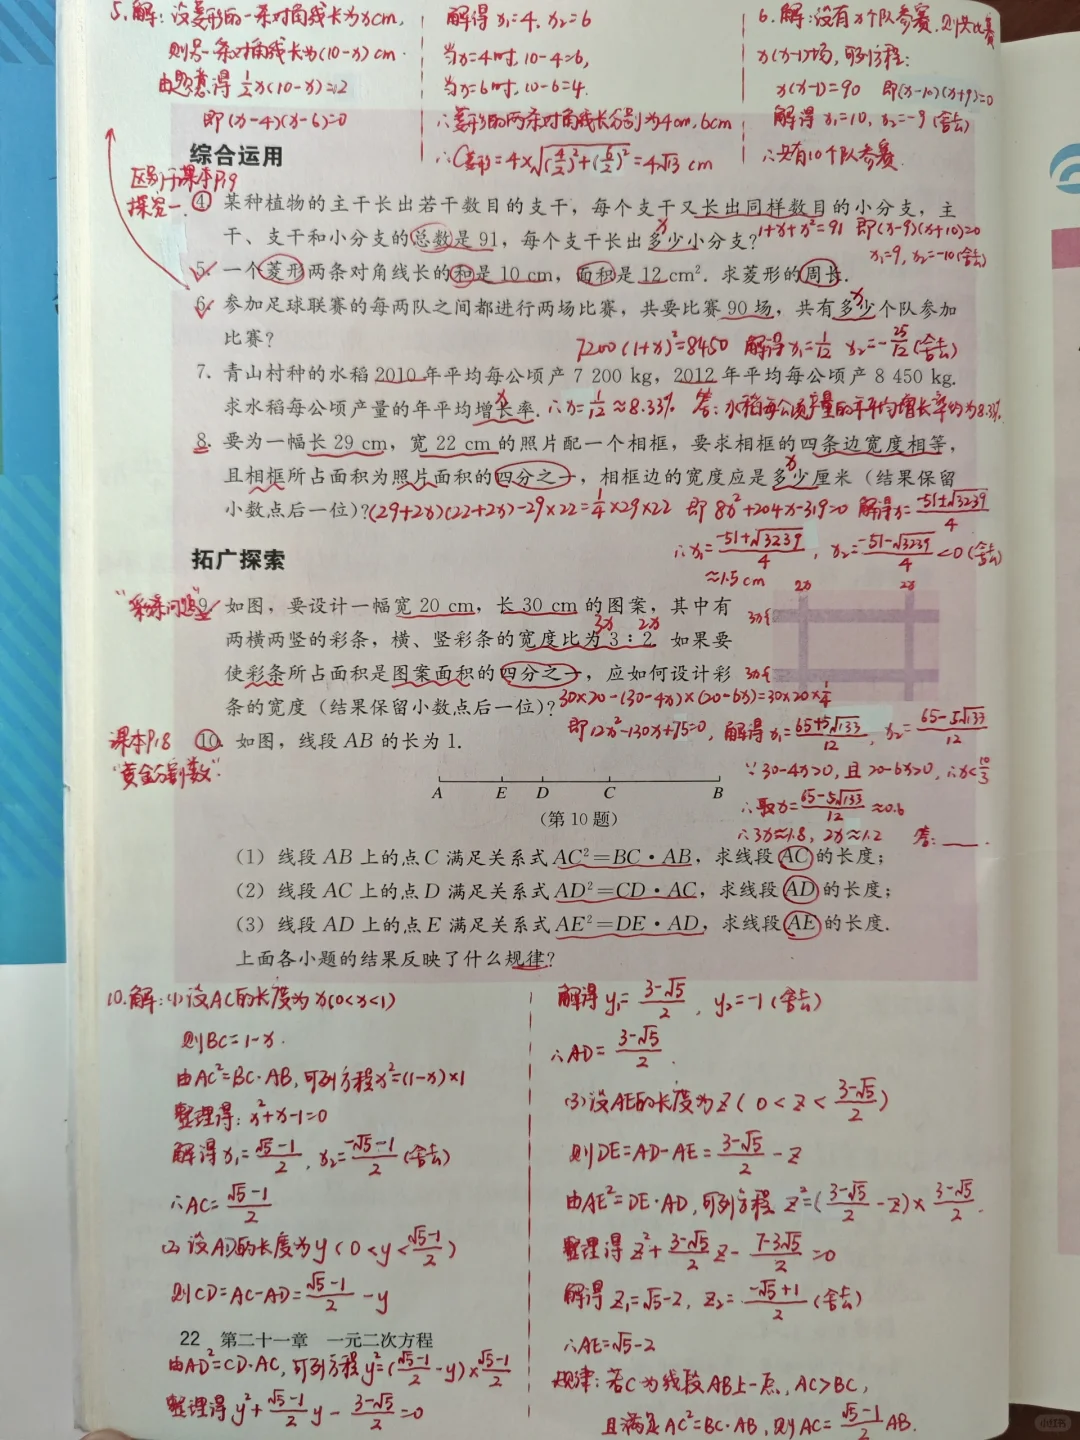 5.解:设菱形的一条对角线长为xcm,
则另一条对角线长为(10-x)cm.
由题意得 1/2x(10-x)=12
即(x-4)(x-6)=0
解得x₁=4, x₂=6
当x=4时, 10-4=6,
当x=6时, 10-6=4.
∴菱形的两条对角线长分别为4cm, 6cm
∴C菱形=4×√((4/2)²+(6/2)²)=4√13 cm
6.解:设有x个队参赛,则共比赛
x(x-1)场,可列方程:
x(x-1)=90 即(x-10)(x+9)=0
解得x₁=10, x₂=-9(舍去)
∴共有10个队参赛.
综合运用
区别于课本P19
探究一.
④ 某种植物的主干长出若干数目的支干,每个支干又长出同样数目的小分支,主
干、支干和小分支的总数是91,每个支干长出多少小分支?
x
1+x+x²=91 即(x-9)(x+10)=0
x₁=9, x₂=-10(舍去)
5. 一个菱形两条对角线长的和是10 cm,面积是12 cm². 求菱形的周长.
6. 参加足球联赛的每两队之间都进行两场比赛,共要比赛90场,共有多少个队参加
x
比赛?
7200(1+x)²=8450 解得x₁=1/12 x₂=-25/12(舍去)
7. 青山村种的水稻2010年平均每公顷产7 200 kg,2012年平均每公顷产8 450 kg.
求水稻每公顷产量的年平均增长率.
x
∴x=1/12≈8.33% 答:水稻每公顷产量的年平均增长率约为8.33%.
8. 要为一幅长29 cm,宽22 cm的照片配一个相框,要求相框的四条边宽度相等,
且相框所占面积为照片面积的四分之一,相框边的宽度应是多少厘米(结果保留
x
小数点后一位)?
(29+2x)(22+2x)-29×22=1/4×29×22 即8x²+204x-319=0 解得x=(-51±√3239)/4
∴x₁=(-51+√3239)/4, x₂=(-51-√3239)/4<0(舍去)
≈1.5cm
拓广探索
“彩条问题”
9. 如图,要设计一幅宽20 cm,长30 cm的图案,其中有
两横两竖的彩条,横、竖彩条的宽度比为3∶2. 如果要
3x 2x
使彩条所占面积是图案面积的四分之一,应如何设计彩
条的宽度(结果保留小数点后一位)?
2x 2x
3x{
3x{
30×20-(30-4x)×(20-6x)=30×20×1/4
即12x²-130x+75=0, 解得x₁=(65+5√133)/12, x₂=(65-5√133)/12
∵30-4x>0,且20-6x>0, ∴x<10/3
∴取x=(65-5√133)/12≈0.6
∴3x≈1.8, 2x≈1.2 答:___.
课本P18
“黄金分割数”.
10. 如图,线段AB的长为1.
A E D C B
(第10题)
(1) 线段AB上的点C满足关系式AC²=BC·AB,求线段AC的长度;
(2) 线段AC上的点D满足关系式AD²=CD·AC,求线段AD的长度;
(3) 线段AD上的点E满足关系式AE²=DE·AD,求线段AE的长度.
上面各小题的结果反映了什么规律?
10.解:(1)设AC的长度为x(0<x<1)
则BC=1-x.
由AC²=BC·AB,可列方程x²=(1-x)×1
整理得:x²+x-1=0
解得x₁=(√5-1)/2, x₂=(-√5-1)/2(舍去)
∴AC=(√5-1)/2
(2)设AD的长度为y(0<y<(√5-1)/2)
则CD=AC-AD=(√5-1)/2-y
22 第二十一章 一元二次方程
由AD²=CD·AC,可列方程y²=((√5-1)/2-y)×(√5-1)/2
整理得y²+(√5-1)/2y-(3-√5)/2=0
解得y₁=(3-√5)/2, y₂=-1(舍去)
∴AD=(3-√5)/2.
(3)设AE的长度为z(0<z<(3-√5)/2)
则DE=AD-AE=(3-√5)/2-z
由AE²=DE·AD,可列方程z²=((3-√5)/2-z)×(3-√5)/2.
整理得z²+(3-√5)/2z-(7-3√5)/2=0
解得z₁=√5-2, z₂=(-√5+1)/2(舍去)
∴AE=√5-2
规律:若C为线段AB上一点,AC>BC,
且满足AC²=BC·AB,则AC=(√5-1)/2AB.
小红书